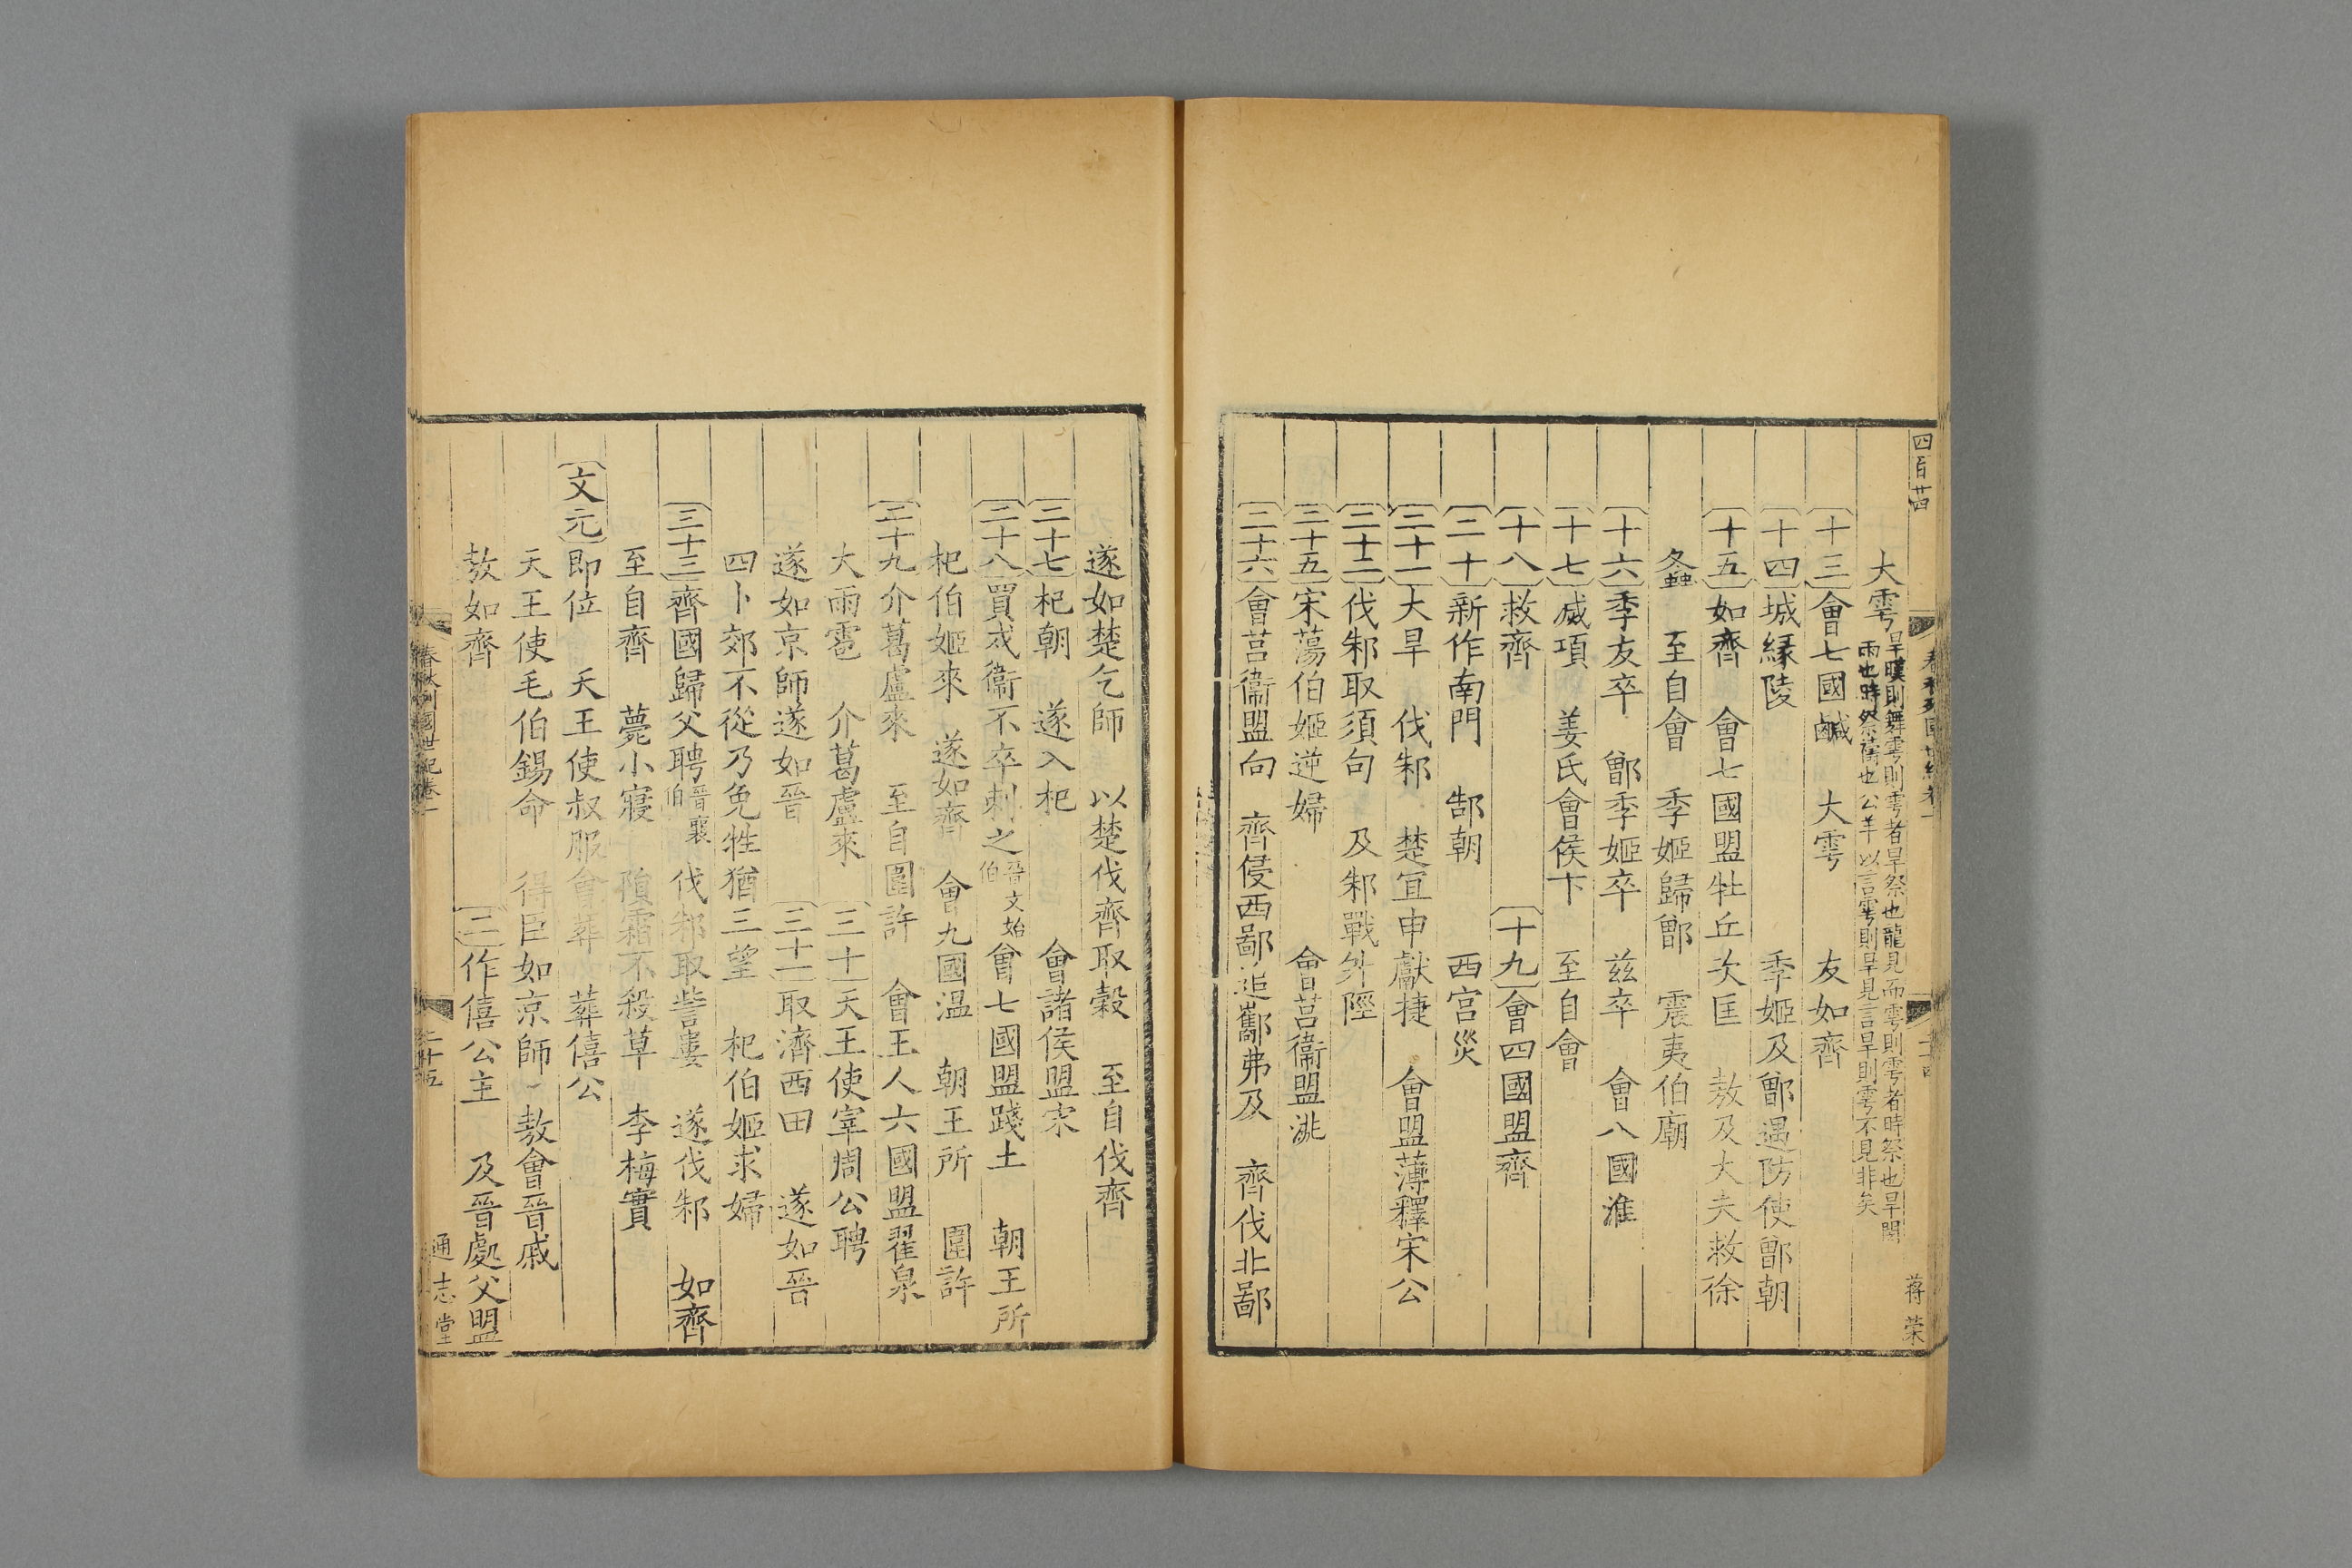 四百廿四
大雩旱暵則舞雩則雩者旱祭也龍見而雩則雩者時祭也旱閔
雨也時祭禱也公羊以言雩則旱見言旱則雩不見非矣
蒋荣
〔十三〕會七國鹹 大雩 友如齊
〔十四〕城緣陵 季姬及鄫遇防使鄫朝
〔十五〕如齊 會七國盟牡丘次匡 敖及大夫救徐
螽 至自會 季姬歸鄫 震夷伯廟
〔十六〕季友卒 鄫季姬卒 兹卒 會八國淮
〔十七〕滅項 姜氏會侯卞 至自會
〔十八〕救齊 〔十九〕會四國盟齊
〔二十〕新作南門 郜朝 西宮災
〔二十一〕大旱 伐邾 楚宜申獻捷 會盟薄釋宋公
〔二十二〕伐邾取須句 及邾戰升陘
〔二十五〕宋蕩伯姬逆婦 會莒衞盟洮
〔二十六〕會莒衞盟向 齊侵西鄙追酅弗及 齊伐北鄙
遂如楚乞師 以楚伐齊取穀 至自伐齊
〔二十七〕杞朝 遂入杞 會諸侯盟宋
〔二十八〕買戍衞不卒刺之晉文始伯 會七國盟踐土 朝王所
杞伯姬來 遂如齊 會九國温 朝王所 圍許
〔二十九〕介葛盧來 至自圍許 會王人六國盟翟泉
大雨雹 介葛盧來 〔三十〕天王使宰周公聘
遂如京師遂如晉 〔三十一〕取濟西田 遂如晉
四卜郊不從乃免牲猶三望 杞伯姬求婦
〔三十三〕齊國歸父聘晉襄伯 伐邾取訾婁 遂伐邾 如齊
至自齊 薨小寢 隕霜不殺草 李梅實
〔文元〕即位 天王使叔服會葬 葬僖公
天王使毛伯錫命 得臣如京師 敖會晉戚
敖如齊 〔二〕作僖公主 及晉處父盟
春秋列國世紀卷一
二十五
通志堂